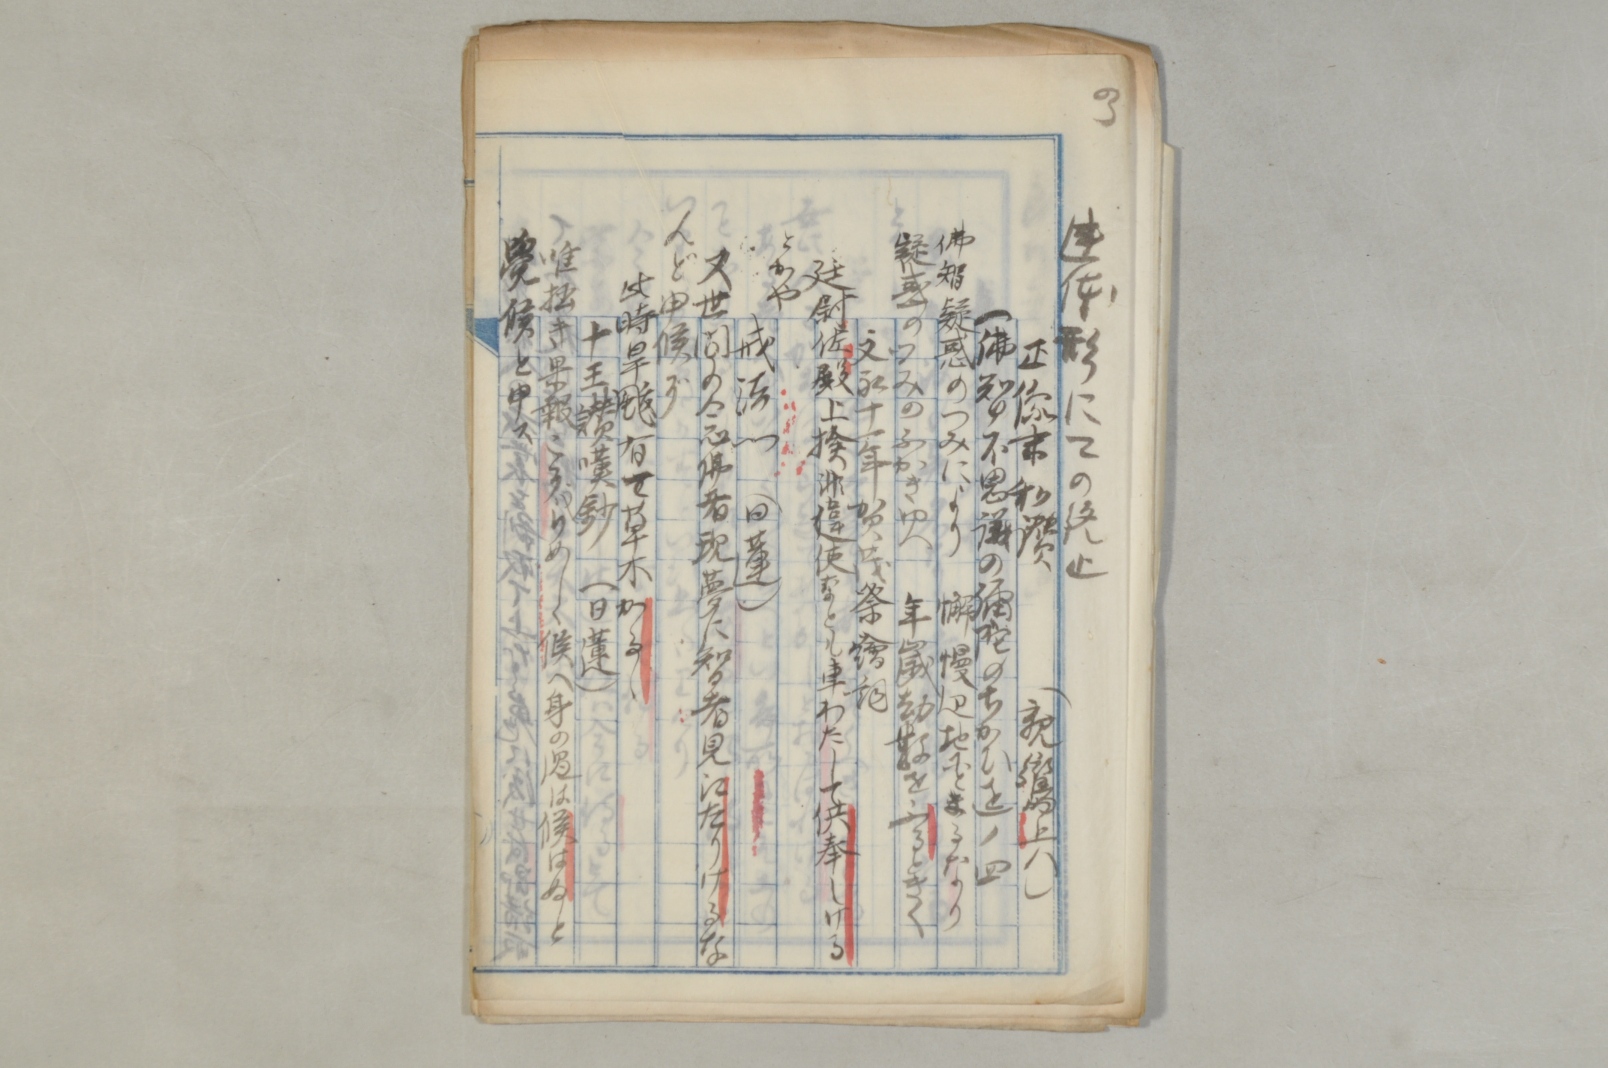 の3
連体形にての終止
正像末和讃 (親鸞上人)
一佛智不思議の彌陀のちかひを 四
佛智疑惑のつみにより 懈慢辺地にとまるなり
疑惑のつみのふかきゆへ 年歳劫数をふるときく
文永十一年賀茂祭繪詞
廷尉佐殿上検非違使なども車わたして供奉しける
とかや
戒法門 (日蓮)
又世間の人念佛者現夢に智者見江たりけるな
んど申候が
此時旱魃有て草木かるゝ
十王讃嘆鈔 (日蓮)
唯拙き果報こそうらめしく候へ身の過は候はぬと
覺候と申ス